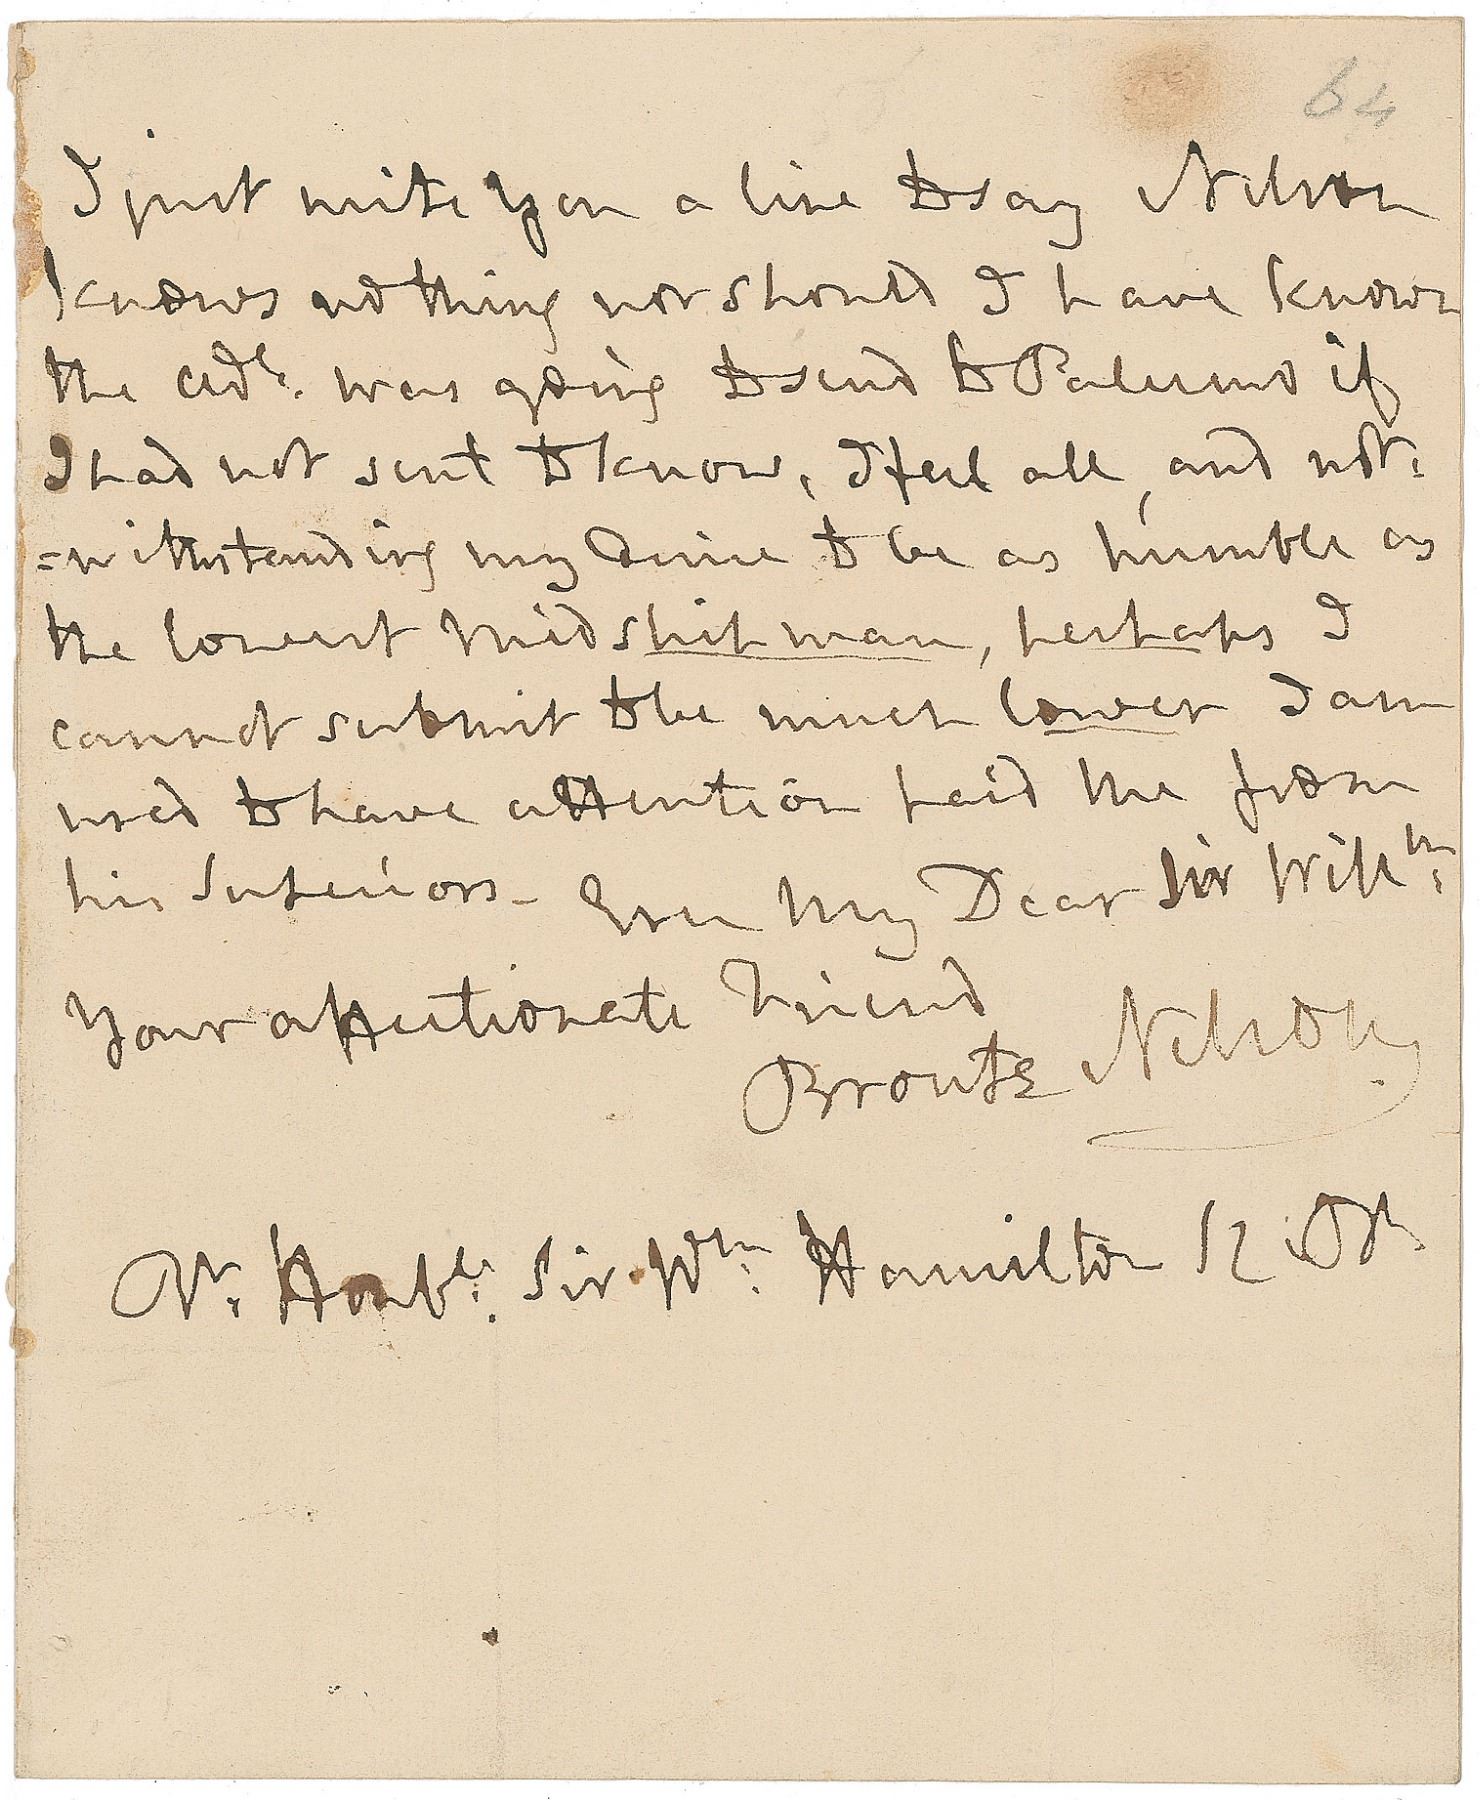 64
I just write you a line to say Nelson
knows nothing nor should I have known
the adl. was going to send to Palermo if
I had not sent to know, I feel all, and not:
=withstanding my desire to be as humble as
the lowest Midshipman, perhaps I
cannot submit to be much lower I am
used to have attention paid me from
his Superiors- Ever My Dear Sir Willm:
Your affectionate Friend
Bronte Nelson
Rt. Honble: Sir Wm: Hamilton K